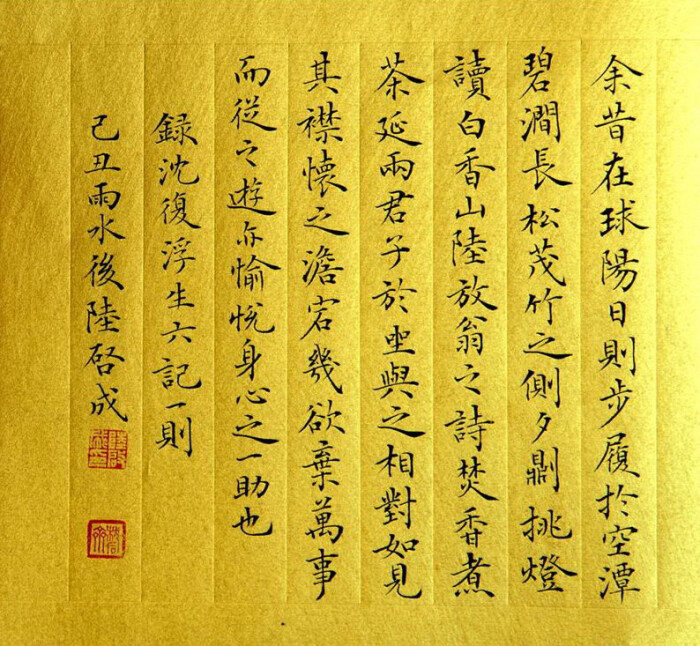 余昔在球陽日則步履於空潭
碧澗長松茂竹之側夕則挑燈
讀白香山陸放翁之詩焚香煮
茶延兩君子於坐與之相對如見
其襟懷之澹宕幾欲棄萬事
而從之遊亦愉悅身心之一助也
録沈復浮生六記一則
己丑雨水後陸啓成